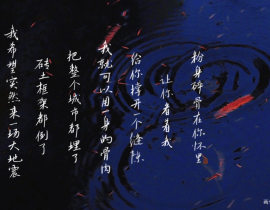 我希望突然来场大地震
砖土框架都倒了
把整个城市都埋了
我就可以用一身的骨肉
给你撑开一个缝隙
让你看着我
粉身碎骨在你怀里